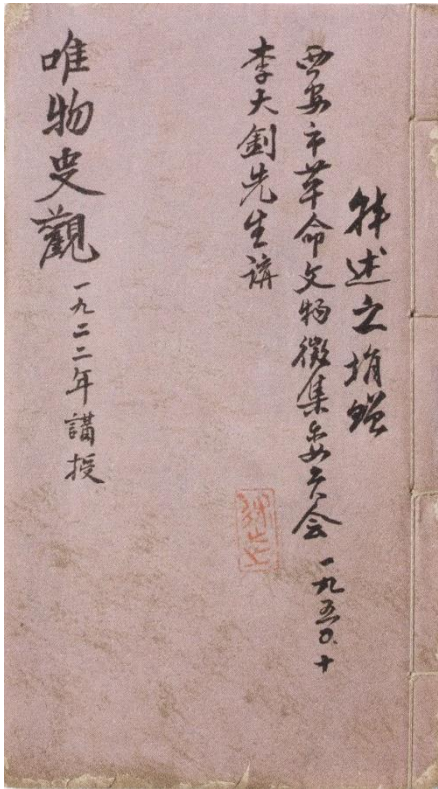 韩述之捐赠
西安市革命文物徵集委员会 一九五〇.十
李大釗先生講
唯物史觀 一九二二年講授